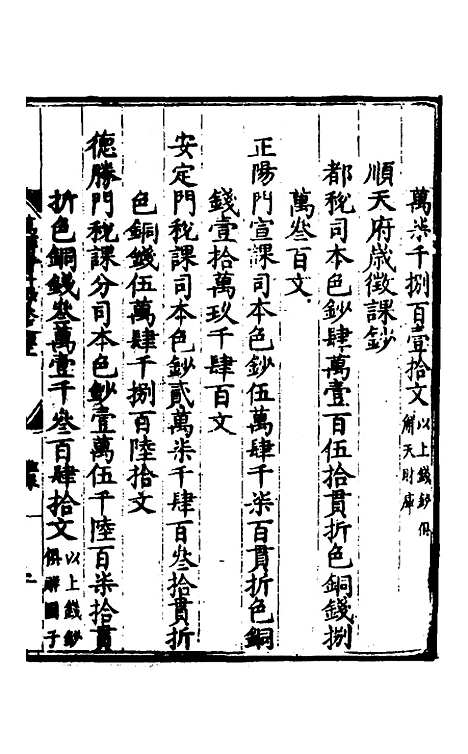 萬柒千捌百壹拾文以上錢鈔俱解天財庫
順天府歲徵課鈔
都稅司本色鈔肆萬壹百伍拾貫折色銅錢捌
萬叁百文
正陽門宣課司本色鈔伍萬肆千柒百貫折色銅
錢壹拾萬玖千肆百文
安定門稅課司本色鈔貳萬柒千肆百叁拾貫折
色銅錢伍萬肆千捌百陸拾文
德勝門稅課分司本色鈔壹萬伍千陸百柒拾貫
折色銅錢叁萬壹千叁百肆拾文以上錢鈔俱解